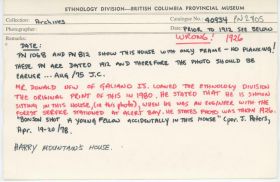 ETHNOLOGY DIVISION—BRITISH COLUMBIA PROVINCIAL MUSEUM
Collection Archives Catalogue No. 40934 PN 2905
Photographer: Date: PRIOR TO 1912 SEE BELOW
Remarks WRONG! 1926
DATE:
PN 1068 AND PN 812 SHOW THIS HOUSE WITH ONLY FRAME - NO PLANKING!
THESE PN ARE DATED 1912 AND THEREFORE THIS PHOTO SHOULD BE
EARLIER... AUG/75 J.C.
MR. DONALD DEW OF GALIANO IS. LOANED THE ETHNOLOGY DIVISION
THE ORIGINAL PRINT OF THIS IN 1980. HE STATED THAT HE IS SHOWN
SITTING IN THIS HOUSE, (IN THIS PHOTO), WHEN HE WAS AN ENGINEER WITH THE
FOREST SERVICE STATIONED AT ALERT BAY. HE STATES PHOTO WAS TAKEN 1926.
"DONSON SHOT A YOUNG FELLOW ACCIDENTALLY IN THIS HOUSE" (per. J. Peters,
Apr. 19-20/98.
HARRY MOUNTAIN'S HOUSE.